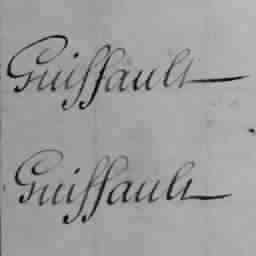 Guissault
Guissault